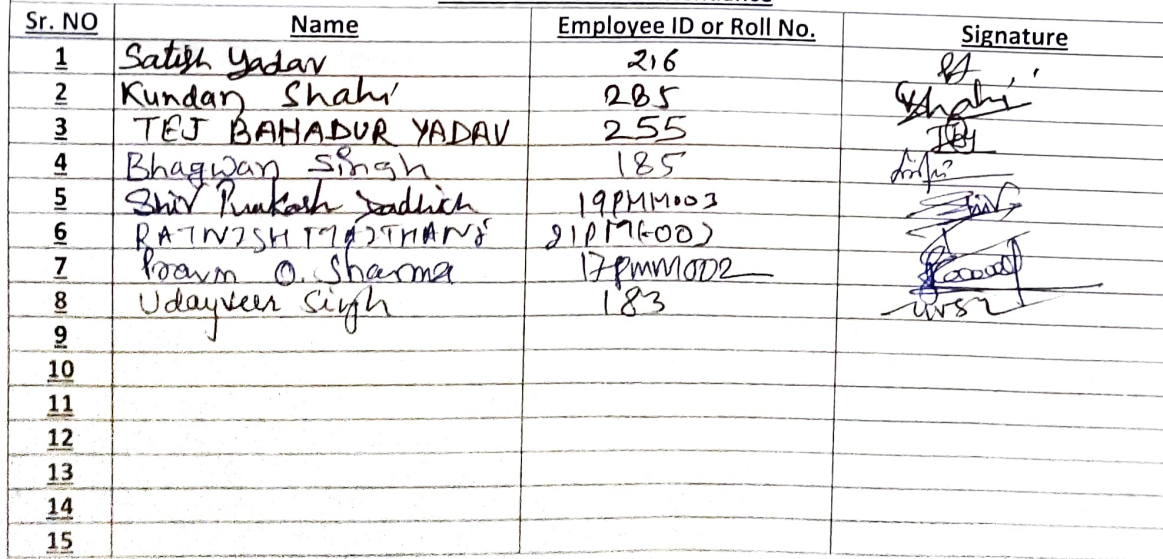 Sr. NO Name Employee ID or Roll No. Signature
1 Satish Yadav 216
2 Kundan Shahi 285 Shahi
3 TEJ BAHADUR YADAV 255 TBY
4 Bhagwan Singh 185
5 Shiv Prakash Dadhich 19PMM003 Shiv
6
7 O. Sharma 17PMM002
8 Udayveer Singh 183
9
10
11
12
13
14
15